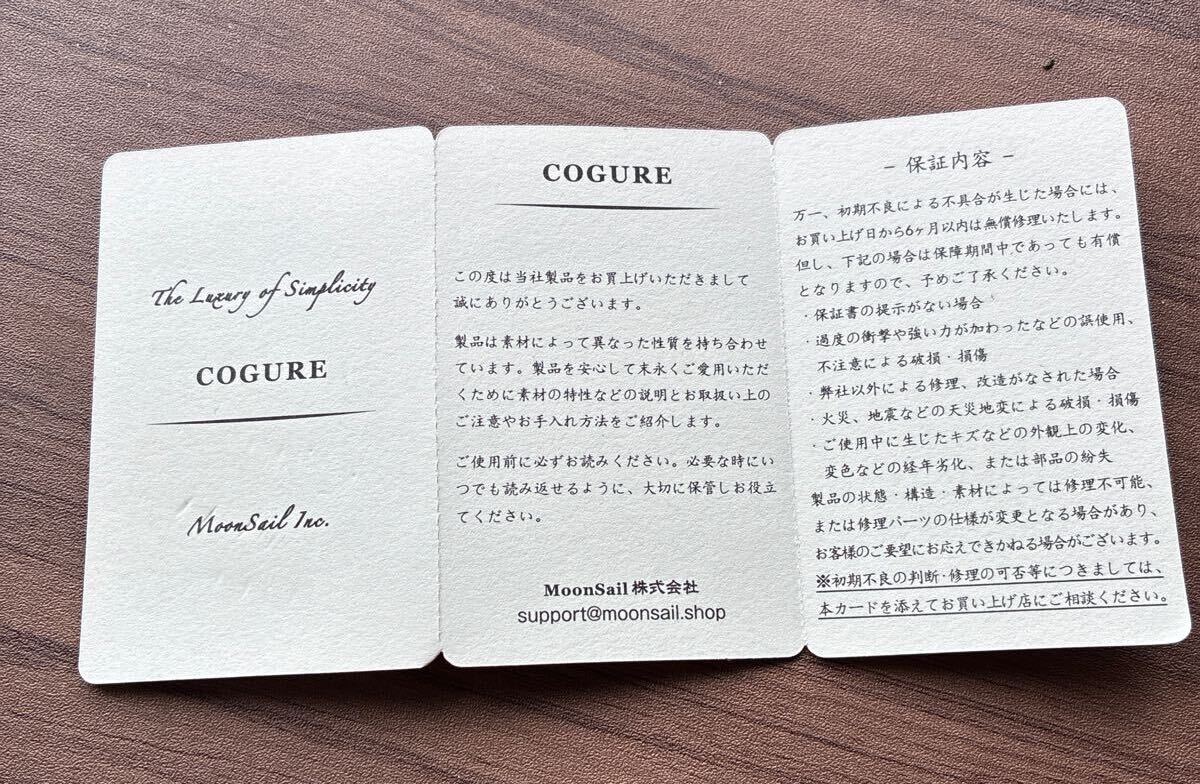 The Luxury of Simplicity
COGURE
MoonSail Inc.
COGURE
この度は当社製品をお買上げいただきまして
誠にありがとうございます。
製品は素材によって異なった性質を持ち合わせ
ています。製品を安心して末永くご愛用いただ
くために素材の特性などの説明とお取扱い上の
ご注意やお手入れ方法をご紹介します。
ご使用前に必ずお読みください。必要な時にい
つでも読み返せるように、大切に保管しお役立
てください。
MoonSail 株式会社
support@moonsail.shop
– 保証内容 –
万一、初期不良による不具合が生じた場合には、
お買い上げ日から6ヶ月以内は無償修理いたします。
但し、下記の場合は保障期間中であっても有償
となりますので、予めご了承ください。
・保証書の提示がない場合
・過度の衝撃や強い力が加わったなどの誤使用、
不注意による破損・損傷
・弊社以外による修理、改造がなされた場合
・火災、地震などの天災地変による破損・損傷
・ご使用中に生じたキズなどの外観上の変化、
変色などの経年劣化、または部品の紛失
製品の状態・構造・素材によっては修理不可能、
または修理パーツの仕様が変更となる場合があり、
お客様のご要望にお応えできかねる場合がございます。
※初期不良の判断・修理の可否等につきましては、
本カードを添えてお買い上げ店にご相談ください。